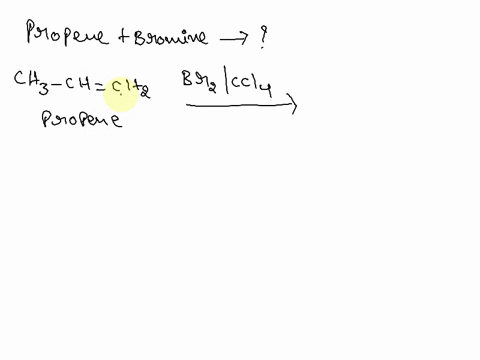 Propene + Bromine → ?
CH3-CH=CH2 Br2/CCl4 →
Propene